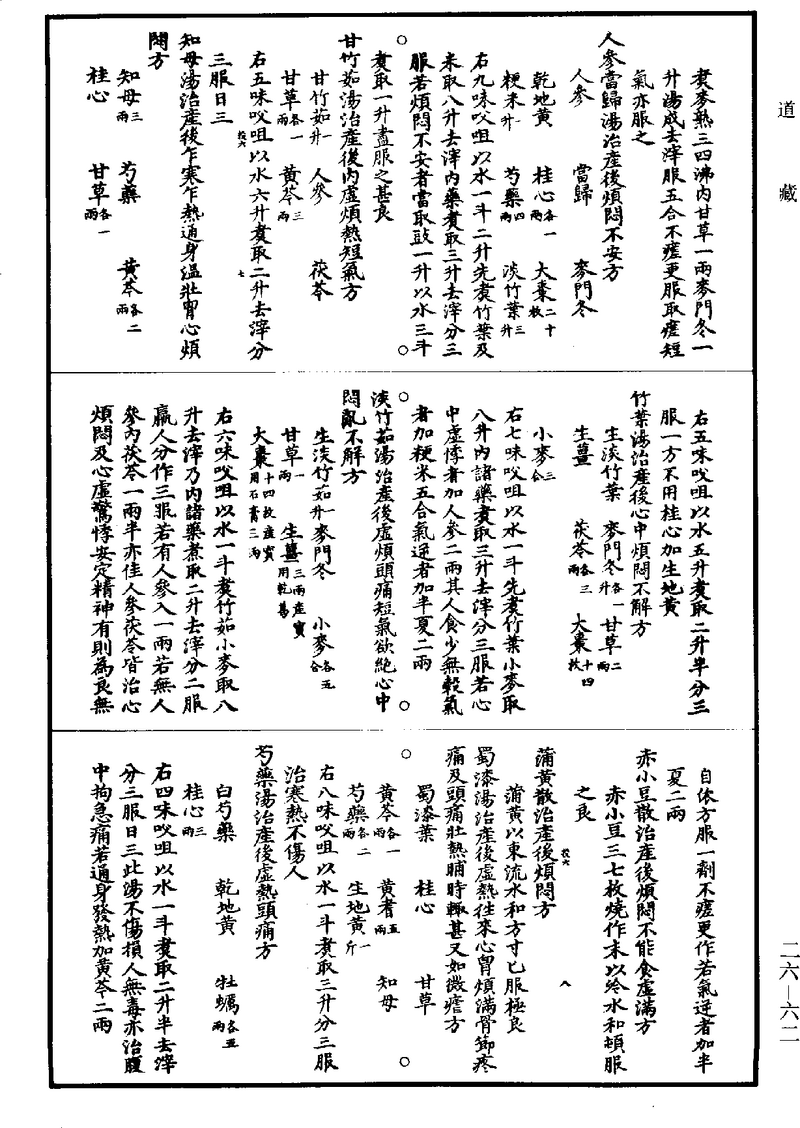 道藏
煑麥熟三四沸內甘草一兩麥門冬一
升湯成去滓服五合不瘥更服取瘥短
氣亦服之
人參當歸湯治產後煩悶不安方
人參 當歸 麥門冬
乾地黃 桂心各一兩 大棗二十枚
粳米一升 芍藥四兩 淡竹葉三升
右九味㕮咀以水一斗二升先煑竹葉及
米取八升去滓內藥煑取三升去滓分三
服若煩悶不安者當取豉一升以水三斗
煑取一升盡服之甚良
甘竹茹湯治產後內虛煩熱短氣方
甘竹茹一升 人參 茯苓
甘草各一兩 黃芩三兩
右五味㕮咀以水六升煑取二升去滓分
三服日三
知母湯治產後乍寒乍熱通身溫壯胷心煩
悶方
知母三兩 芍藥 黃芩各二兩
桂心 甘草各一兩
右五味㕮咀以水五升煑取二升半分三
服一方不用桂心加生地黃
竹葉湯治產後心中煩悶不解方
生淡竹葉 麥門冬各一升 甘草二兩
生薑 茯苓各三兩 大棗十四枚
小麥三合
右七味㕮咀以水一斗先煑竹葉小麥取
八升內諸藥煑取三升去滓分三服若心
中虛悸者加人參二兩其人食少無穀氣
者加粳米五合氣逆者加半夏二兩
淡竹茹湯治產後虛煩頭痛短氣欲絕心中
悶亂不解方
生淡竹茹一升 麥門冬 小麥各五合
甘草一兩 生薑三兩產寶用乾葛
大棗十四枚產寶用石膏三兩
右六味㕮咀以水一斗煑竹茹小麥取八
升去滓乃內諸藥煮取二升去滓分二服
羸人分作三服若有人參入一兩若無人
參內茯苓一兩半亦佳人參茯苓皆治心
煩悶及心虛驚悸安定精神有則為良無
自依方服一劑不瘥更作若氣逆者加半
夏二兩
赤小豆散治產後煩悶不能食虛滿方
赤小豆三七枚燒作末以冷水和頓服
之良
蒲黃散治產後煩悶方
蒲黃以東流水和方寸匕服極良
蜀漆湯治產後虛熱往來心胷煩滿骨節疼
痛及頭痛壯熱晡時輒甚又如微瘧方
蜀漆葉 桂心 甘草
黃芩各一兩 黃耆五兩 知母
芍藥各二兩 生地黃一斤
右八味㕮咀以水一斗煑取三升分三服
治寒熱不傷人
芍藥湯治產後虛熱頭痛方
白芍藥 乾地黃 牡蠣各五兩
桂心三兩
右四味㕮咀以水一斗煑取二升半去滓
分三服日三此湯不傷損人無毒亦治腹
中拘急痛若通身發熱加黃芩二兩
二六—六二